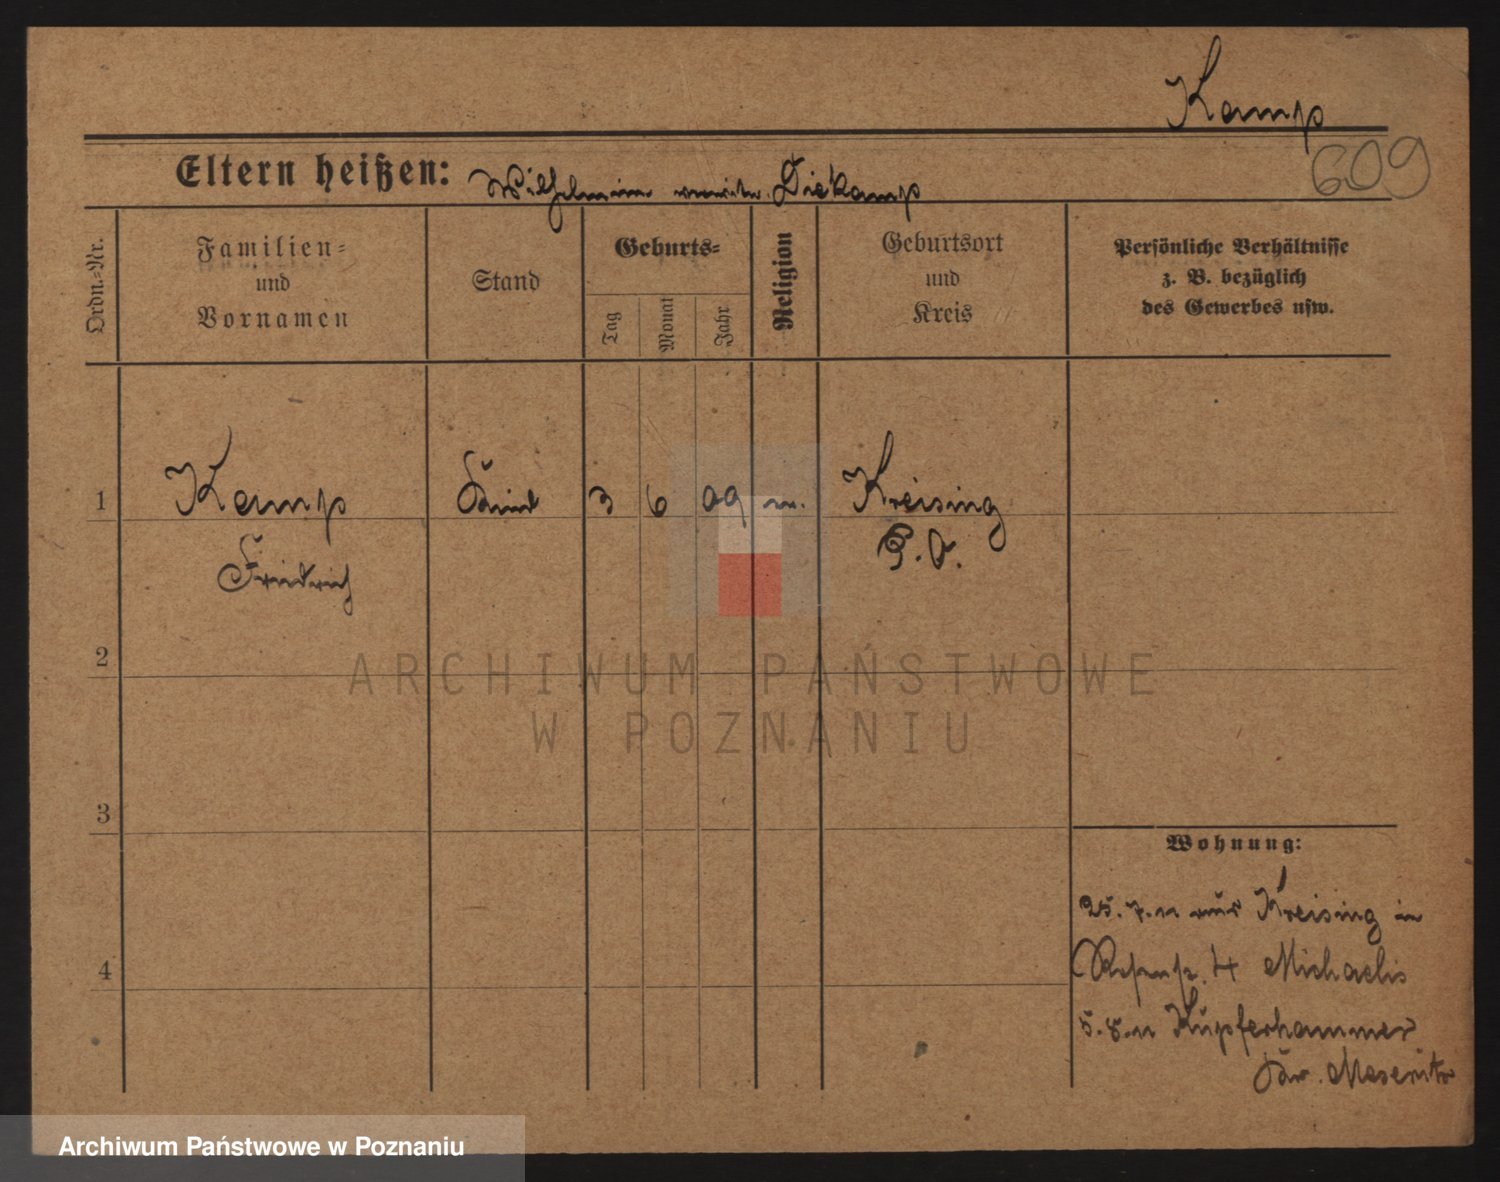 Kamp
609
Eltern heißen: Wilhelmine Diekamp
Ordn.-Nr.
Familien-
und
Vornamen
Stand
Geburts-
Tag
Monat
Jahr
Religion
Geburtsort
und
Kreis
Persönliche Verhältnisse
z. B. bezüglich
des Gewerbes usw.
1
Kamp
Friedrich
Kind
3
6
09
Kreising
P. O.
2
3
4
Wohnung:
25.7.11 aus Kreising in
4 Michaelis
5.8.11 Kupferhammer
Kr. Meseritz
ARCHIWUM PAŃSTWOWE
W POZNANIU
Archiwum Państwowe w Poznaniu